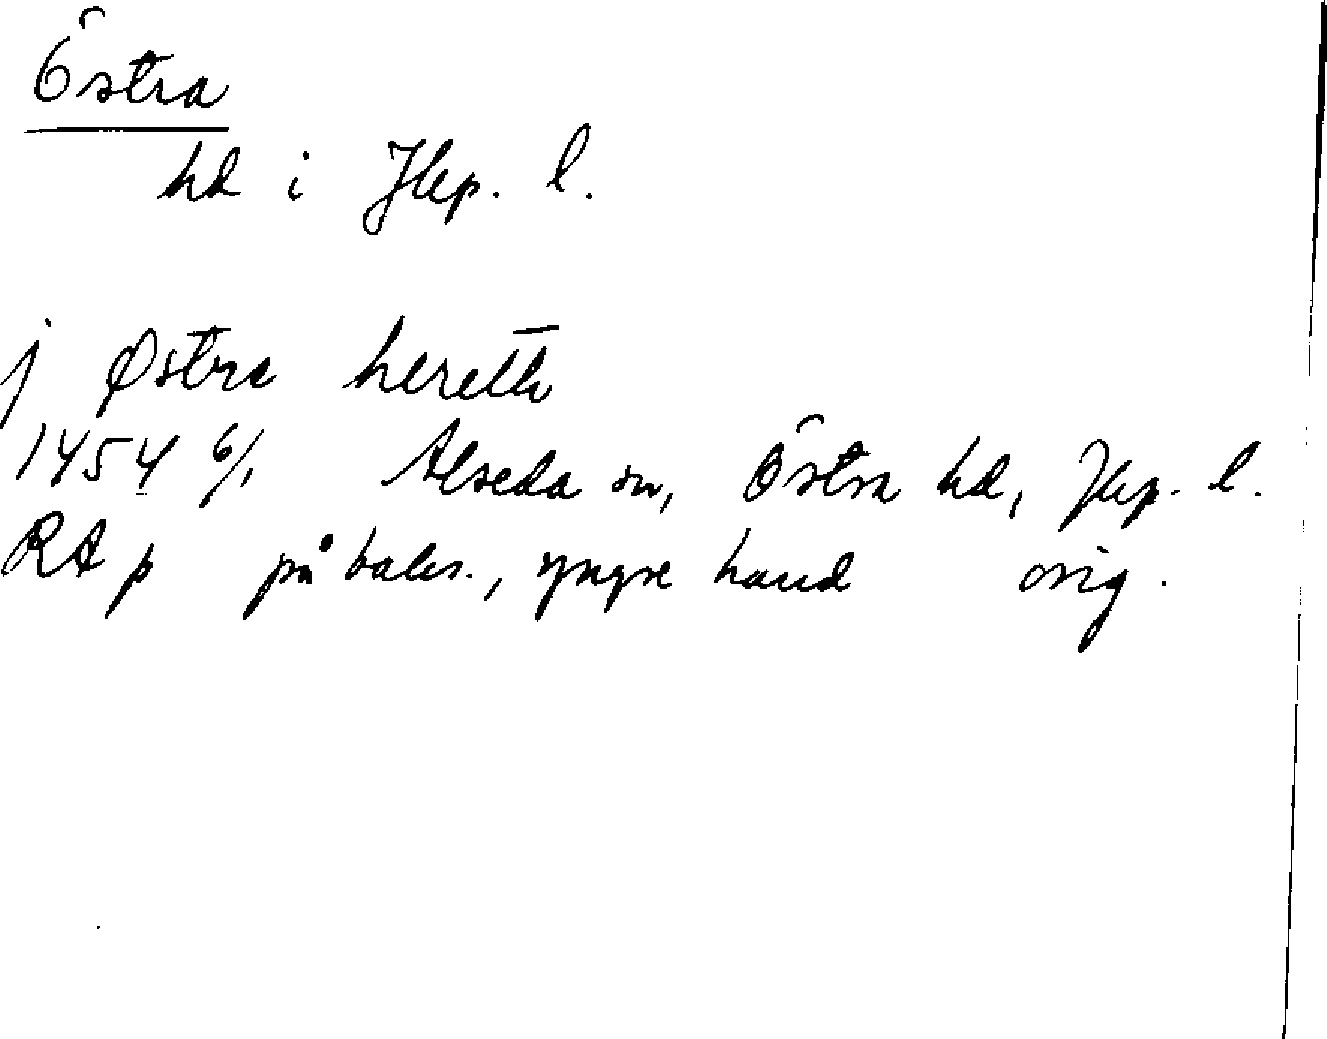 Östra
hd i Jkp. l.
j Østra herette
1454 6/1 Alseda sn, Östra hd, Jkp. l.
RA p på baks., yngre hand orig.